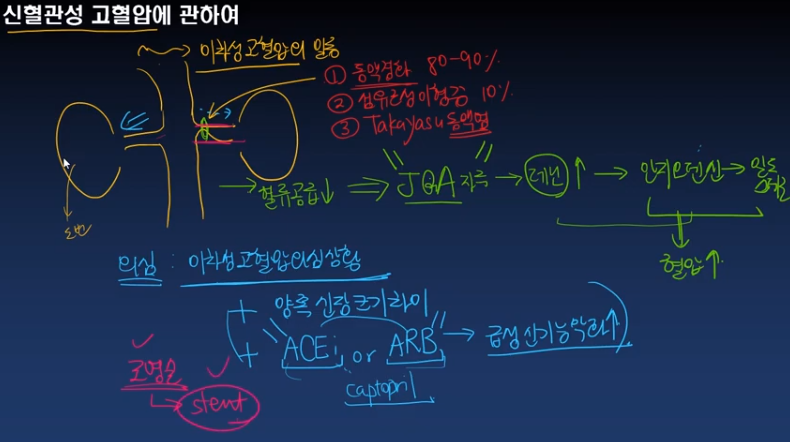 신혈관성 고혈압에 관하여
이차성고혈압의 일종
① 동맥경화 80-90%
② 섬유근성이형증 10%
③ Takayasu 동맥염
→ 혈류공급↓ ⇒ JGA 자극 → 레닌↑ → 안지오텐신 → 알도
혈압↑
소변
의심 : 이차성고혈압의심상황
+ 양쪽 신장크기차이
+ ACEi or ARB → 급성신기능악화↑
captopril
조영술
→ stent